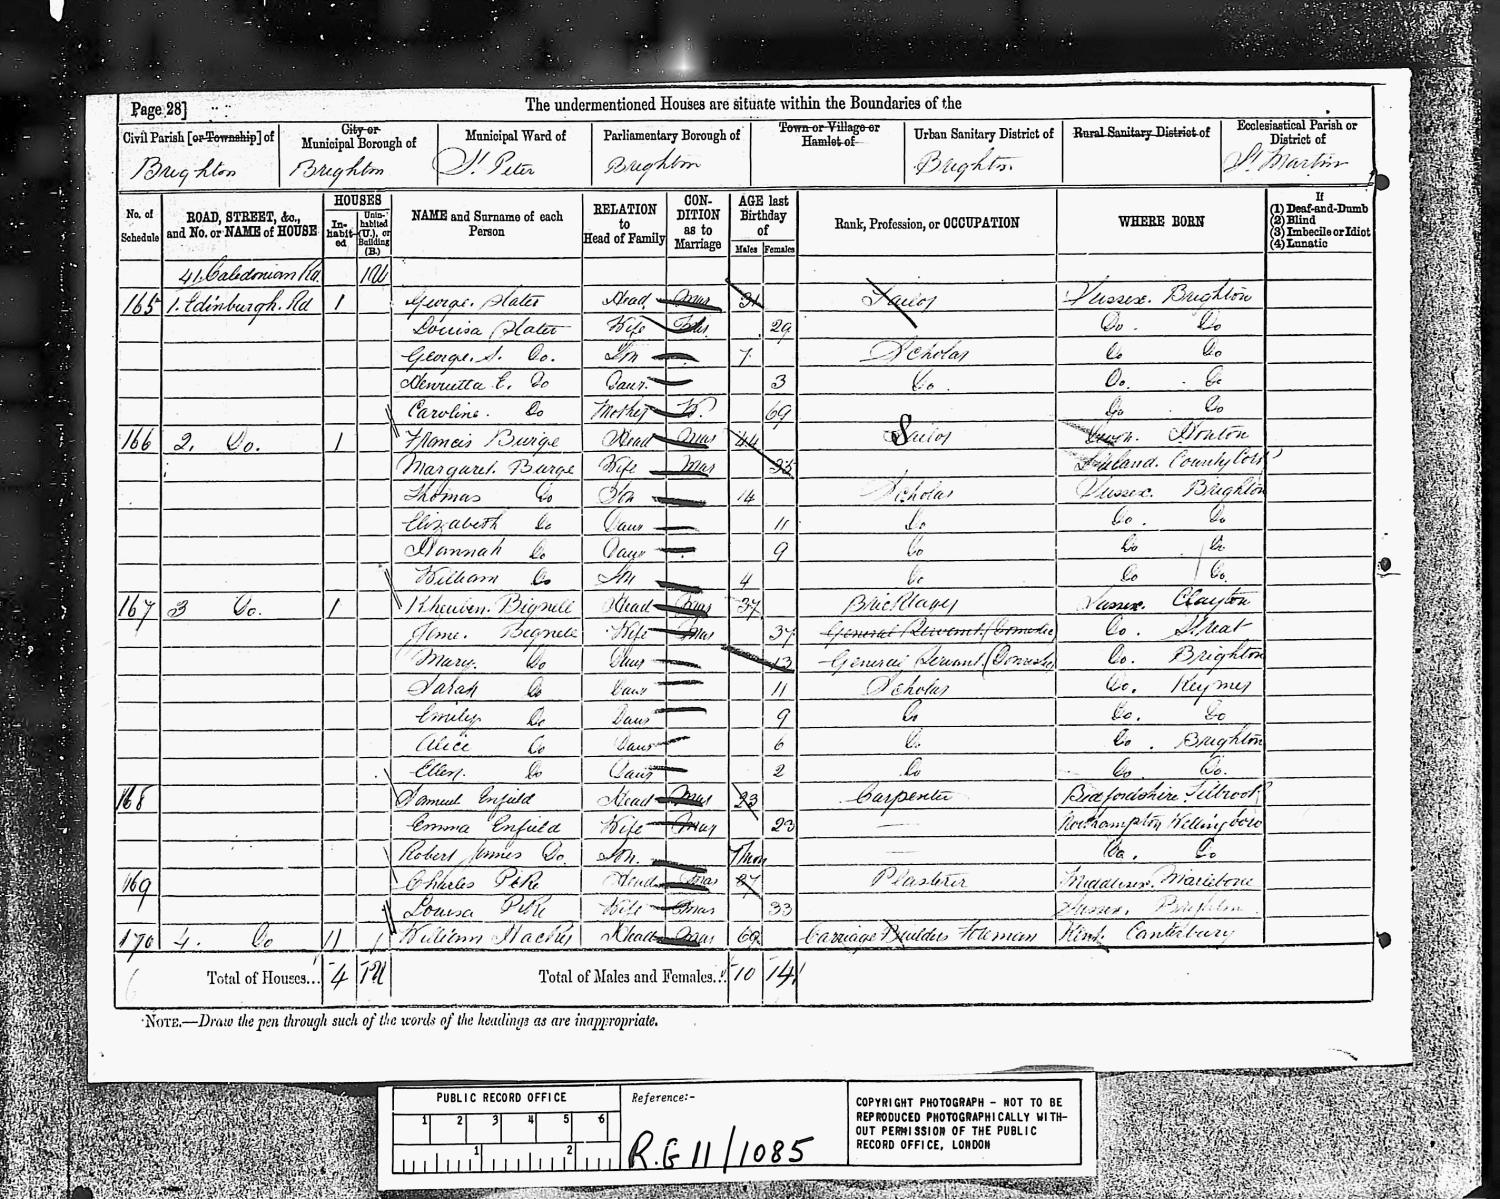 Page 28]
The undermentioned Houses are situate within the Boundaries of the
Civil Parish [or Township] of
City or Municipal Borough of
Municipal Ward of
Parliamentary Borough of
Town or Village or Hamlet of
Urban Sanitary District of
Rural Sanitary District of
Ecclesiastical Parish or District of
Brighton Brighton St Peter Brighton Brighton. St Martin
No. of Schedule
ROAD, STREET, &c., and No. or NAME of HOUSE
HOUSES
In-habit-ed
Unin-habited (U.), or Building (B.)
NAME and Surname of each Person
RELATION to Head of Family
CON-DITION as to Marriage
AGE last Birthday of
Males Females
Rank, Profession, or OCCUPATION
WHERE BORN
If
(1) Deaf-and-Dumb
(2) Blind
(3) Imbecile or Idiot
(4) Lunatic
41. Caledonian Rd. 1U
165 1. Edinburgh. Rd 1 George. Slater Head Mar 31 Sussex. Brighton
Louisa Slater Wife Mar 29 Do. Do
George. S. Do. Son 7 Scholar Do Do
Henrietta E. Do Daur. 3 Do. Do. Do
Caroline. Do Mother W. 69 Do Do
166 2. Do. 1 Francis Burge Head Mar 44 Devon. Honiton
Margaret Burge Wife Mar 35 Ireland. County Cork
Thomas Do Son 14 Scholar Sussex. Brighton
Elizabeth Do Daur 11 Do Do. Do
Hannah Do Daur 9 Do Do Do
William Do Son 4 Do Do Do.
167 3 Do. 1 Rheuben. Bignell Head Mar 37 Bricklayer Sussex. Clayton
Jane. Bignell Wife Mar 37 General Servant (Domestic) Do. Streat
Mary. Do Daur 13 General Servant (Domestic) Do. Brighton
Sarah Do Daur 11 Scholar Do. Keymer
Emily Do Daur 9 Do Do. Do
Alice Do Daur 6 Do Do. Brighton
Ellen. Do Daur 2 Do Do. Do.
168 Samuel Enfield Head Mar 23 Carpenter Bedfordshire Tilbrook
Emma Enfield Wife Mar 23 Northampton Wellingboro
Robert James Do. Son. 7 Mon Do. Do
169 Charles Head Mar 37 Plasterer Middlesex. Marlebone
Louisa Wife Mar 33 Sussex. Brighton
170 4. Do 1 William Head Mar 69 Carriage Builders Foreman Kent Canterbury
Total of Houses... 4 1U Total of Males and Females... 10 14
NOTE.—Draw the pen through such of the words of the headings as are inappropriate.
PUBLIC RECORD OFFICE
1 2 3 4 5 6
1 2
Reference:-
R.G 11/1085
COPYRIGHT PHOTOGRAPH - NOT TO BE
REPRODUCED PHOTOGRAPHICALLY WITH-
OUT PERMISSION OF THE PUBLIC
RECORD OFFICE, LONDON